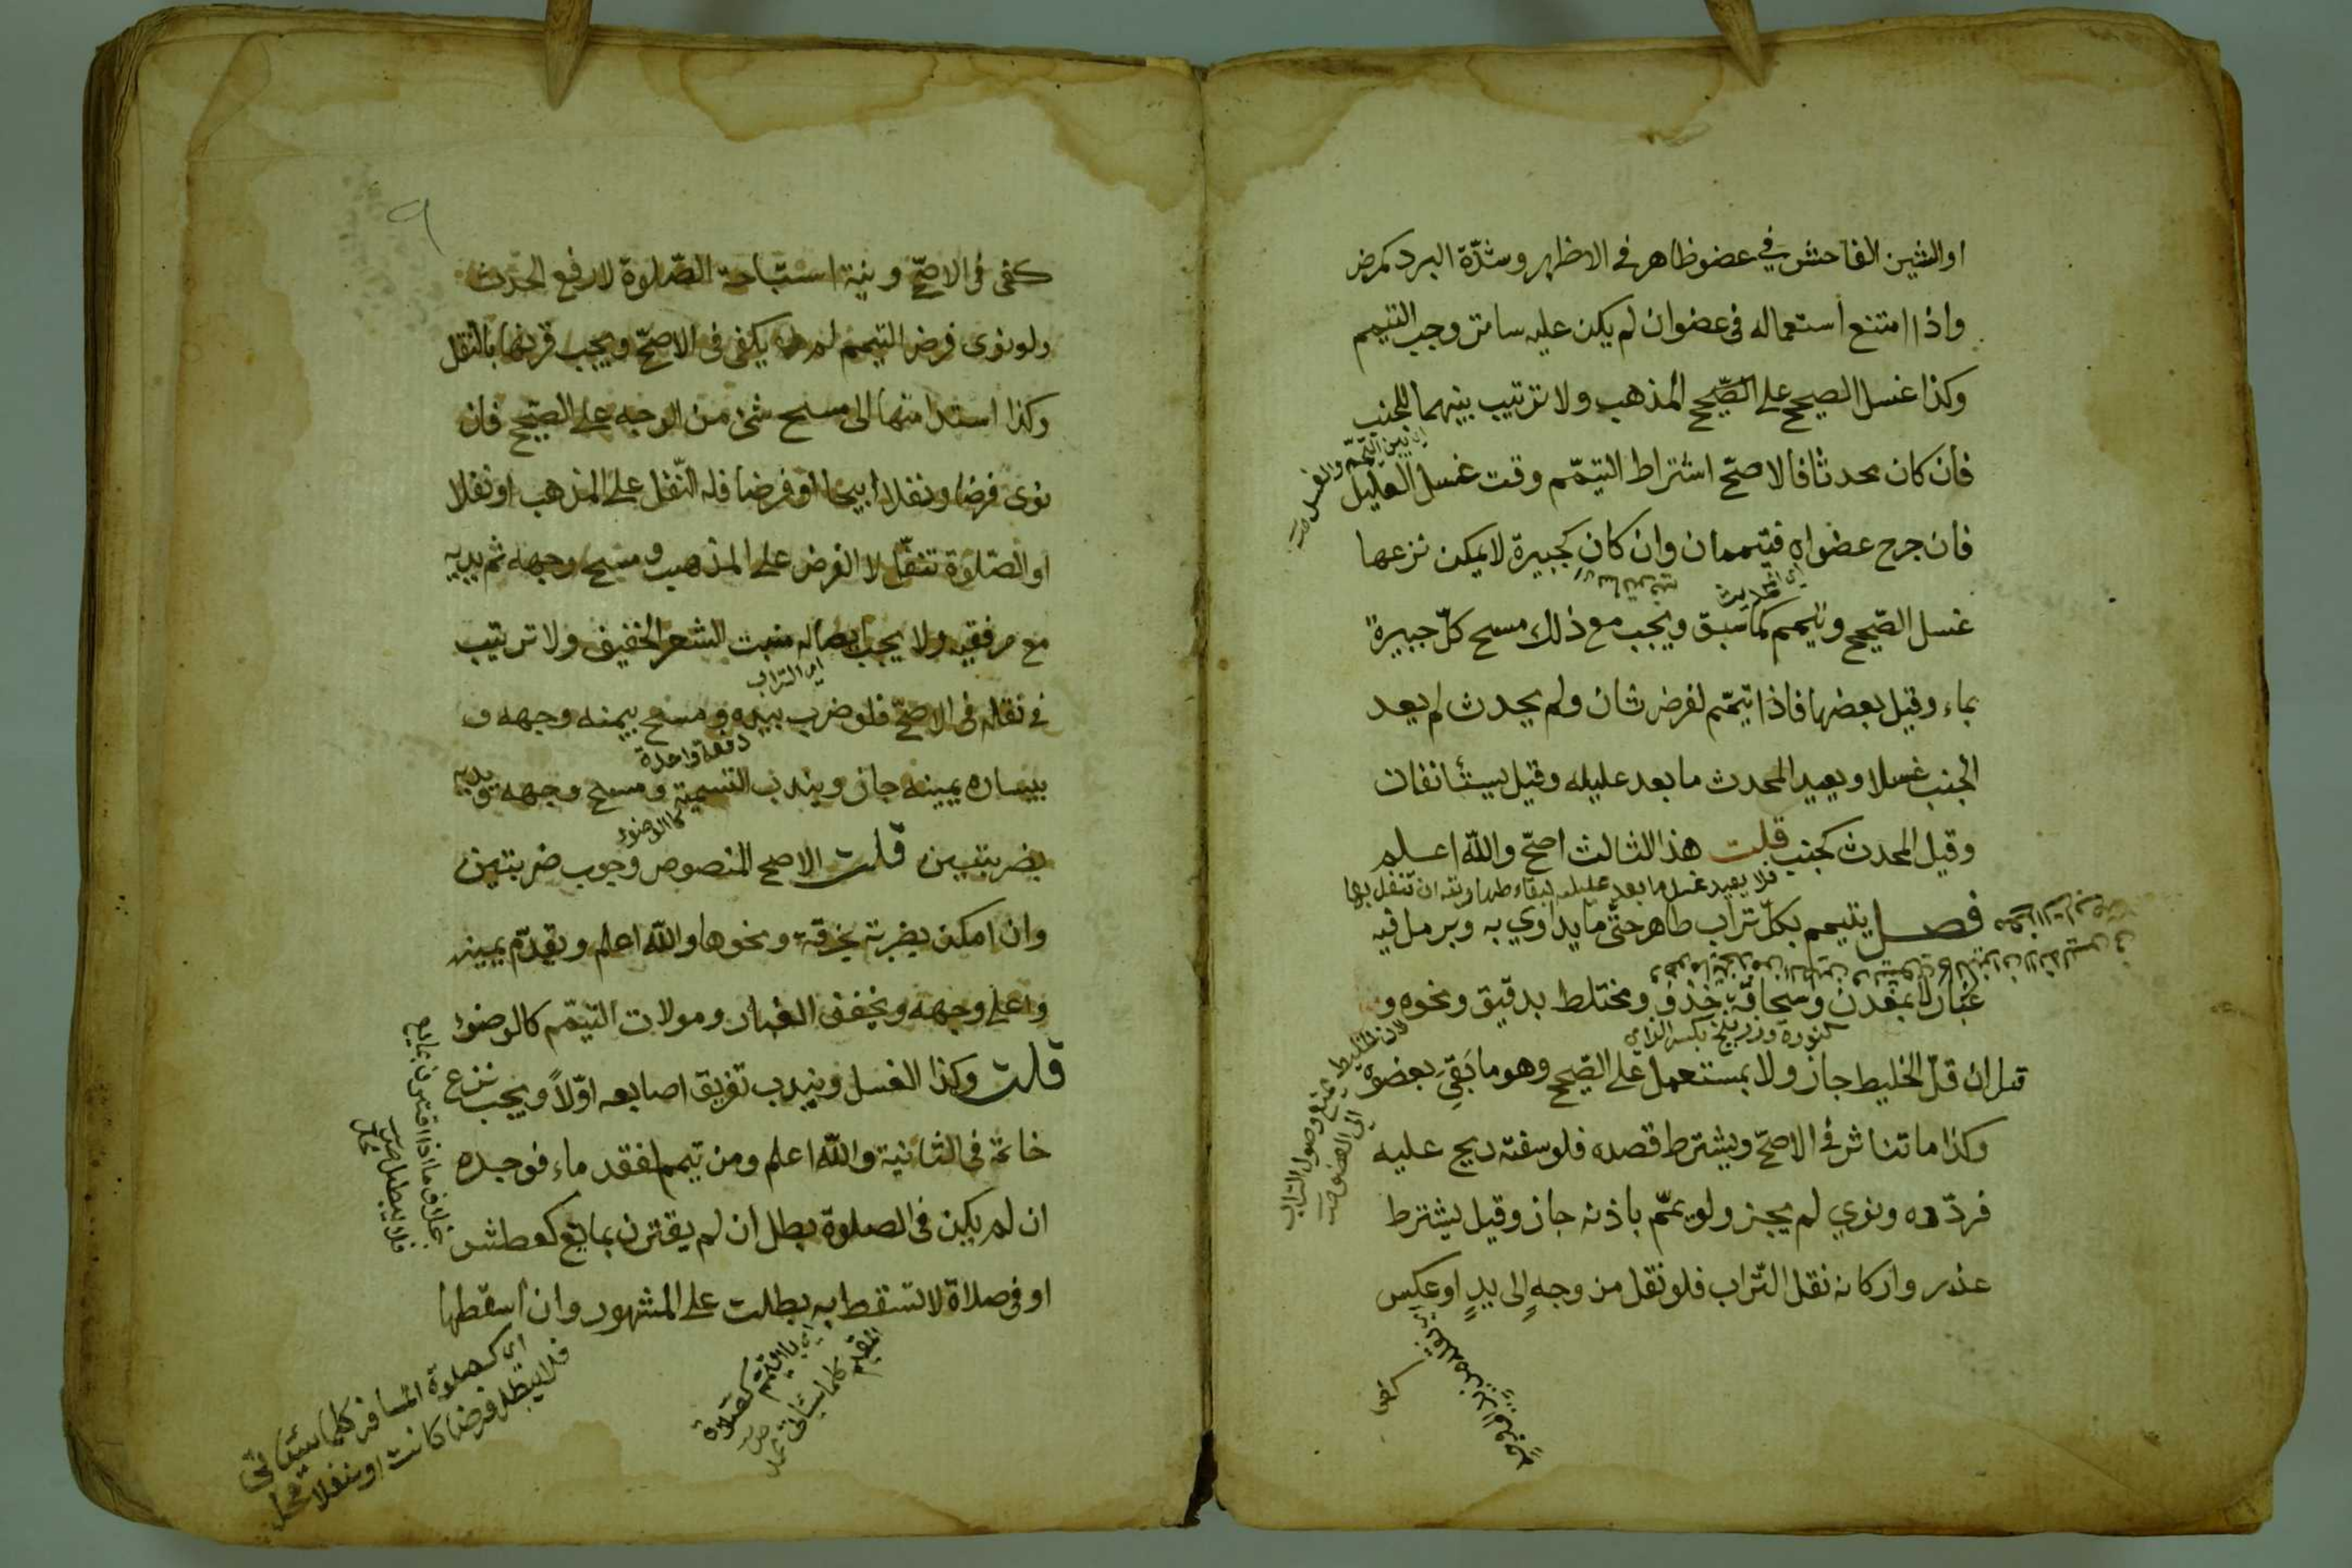 او الشين الفاحش في عضو ظاهر في الاظهر وشدّة البرد كمرض
واذا امتنع استعماله في عضو ان لم يكن عليه ساتر وجب التيمم
وكذا غسل الصحيح على الصّحيح المذهب ولا ترتيب بينهما للجنب
اي بين التيمّم والغسل
فان كان محدثا فالاصحّ اشتراط التيمّم وقت غسل العليل
فان جرح عضواه فتيممان وان كان كجبيرة لا يمكن نزعها
غسل الصّحيح وتيمم كما سبق ويجب مع ذلك مسح كلّ جبيرة
بماء وقيل بعضها فاذا تيمّم لفرض ثان ولم يحدث لم يعد
الجنب غسلا ويعيد المحدث ما بعد عليله وقيل يستأنفان
وقيل المحدث كجنب قلت هذا الثالث اصحّ والله اعلم
فلا يعيد غسل ما بعد عليله لبقاء طهارته ان تنفل بها
فصل يتيمم بكلّ تراب طاهر حتّى ما يداوي به وبرمل فيه
غبار لا بمعدن وسحاقة خذف ومختلط بدقيق ونحوه و
كنورة وزرنيخ بكسر الزاي
قيل ان قلّ الخليط جاز ولا بمستعمل على الصّحيح وهو ما بَقِيَ بعضوه
لان الخليط يمنع وصول التراب
الى العضو
وكذا ما تناثر في الاصحّ ويشترط قصده فلو سفته ريح عليه
فردّده ونوي لم يجز ولو يمّم باذنه جاز وقيل يشترط
عذر واركانه نقل التّراب فلو نقل من وجهٍ الى يدٍ او عكس
كفى
٩
كفى في الاصحّ ونية استباحة الصّلوة لا رفع الحدث
ولو نوى فرض التيمم لم يكفى في الاصحّ ويجب قرنها بالنقل
وكذا استدامتها الى مسح شئ من الوجه على الصّحيح فان
نوى فرضا ونفلا ابيحا او فرضا فله النّفل على المذهب او نفلا
او الصّلوة تنفّل لا الفرض على المذهب ومسح وجهه ثم يديه
مع مرفقيه ولا يجب ايصاله منبت الشعر الخفيف ولا ترتيب
اي التراب
في نقله في الاصحّ فلو ضرب بيديه ومسح بيمنه وجهه و
دفعة واحدة
بيساره يمينه جاز ويندب التسمية ومسح وجهه ويديه
كالوضوء
بضربتين قلت الاصح المنصوص وجوب ضربتين
وان امكن بضربة بخرقة ونحوها والله اعلم ويقدّم يمينه
واعلى وجهه ويخفف الغبار ومولات التيمّم كالوضوء
قلت وكذا الغسل ويندب تفريق اصابعه اوّلاً ويجب نزع
خاتمه في الثانية والله اعلم ومن تيمم لفقد ماء فوجده
ان لم يكن في الصلوة بطل ان لم يقترن بمانع كعطش
بخلاف ما اذا اقترن بمانع
فلا يبطل
او في صلاة لا تسقط به بطلت على المشهور وان اسقطها
اي بالتيمّم كصلاة
المقيم كما سيأتي
اي كصلوة المسافر كما سيأتي
فلا يبطل فرضا كانت او نفلا